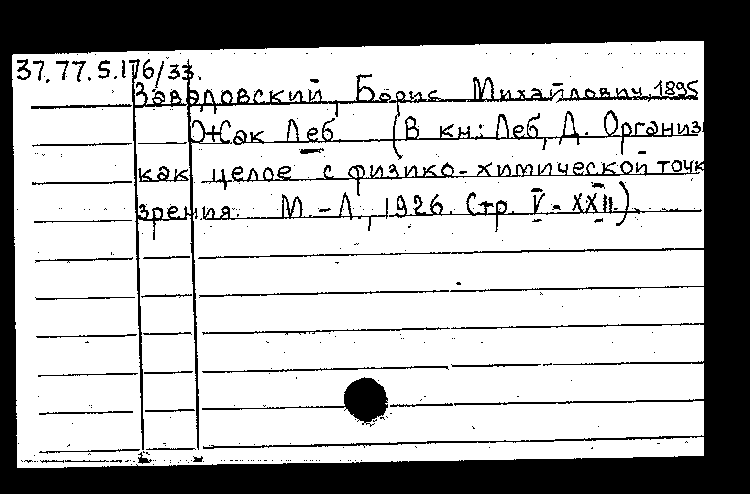 37.77.5.176/33.
Завадовский, Борис Михайлович, 1895
Жак Леб (В кн: Леб, Д. Организ
как целое с физико-химической точк
зрения. М.-Л., 1926. Стр. V-XXII).